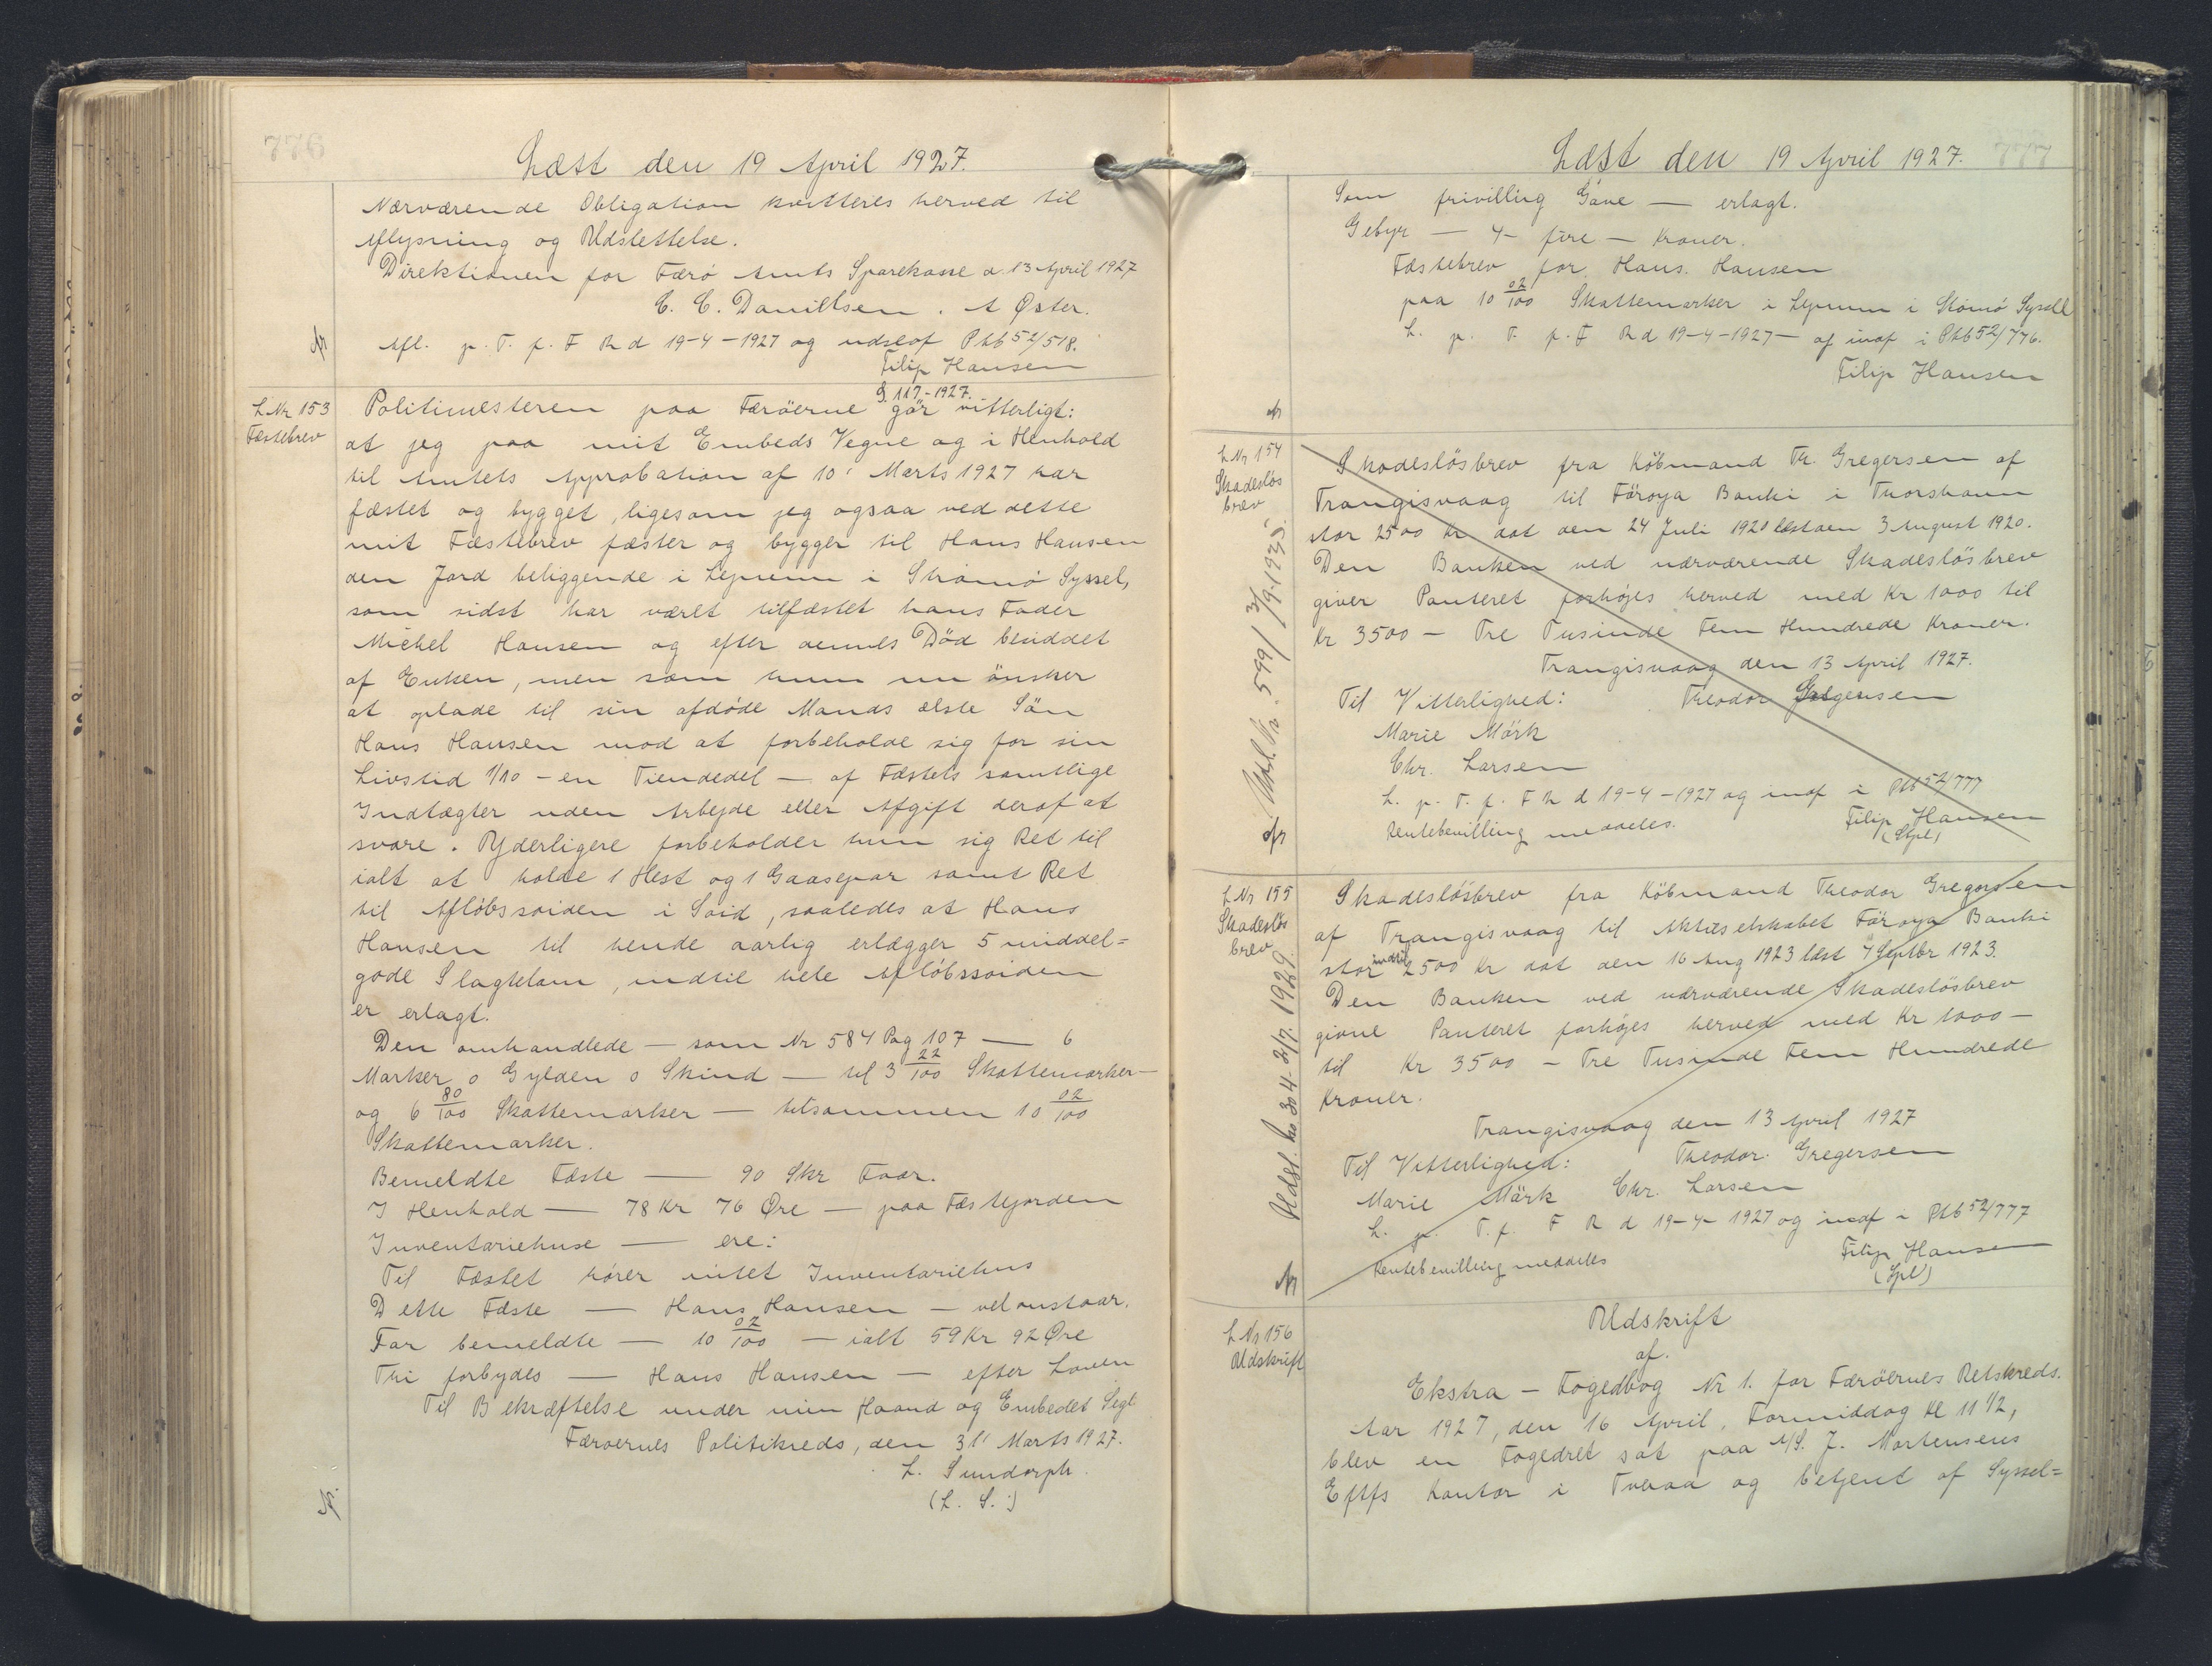 776
Læst den 19 April 1927.
Nærværende Obligation kvitteres herved til
Aflysning og Udslettelse.
Direktionen for Færö Amts Sparekasse d. 13 April 1927
C. C. Danillsen. A Øster.
Afl. p. T. f. F R d 19-4-1927 og udslof Ptb 52/518.
Filip Hansen
S. 117.-1927.
L Nr 153
Fæstebrev
Politimesteren paa Færöerne gör vitterligt:
at jeg paa mit Embeds Vegne og i Henhold
til Amtets Approbation af 10' Marts 1927 har
fæstet og bygget, ligesom jeg ogsaa ved dette
mit Fæstebrev fæster og bygger til Hans Hansen
den Jord beliggende i Lejnum i Strömö Syssel,
som sidst har været tilfæstet hans Fader
Michel Hansen og efter dennes Död besiddet
af Enken, men som hun nu önsker
at oplade til sin afdöde Mands ælste Sön
Hans Hansen mod at forbeholde sig for sin
Livstid 1/10 - en Tiendedel - af Fæstets samtlige
Indtægter uden Arbejde eller Afgift deraf at
svare. Yderligere forbeholder hun sig Ret til
ialt at holde 1 Hest og 1 Gaasepar samt Ret
til Aflöbssoiden i Soid, saaledes at Hans
Hansen til hende aarlig erlægger 5 middel=
gode Slagtelam, indtil hele Aflöbssoiden
er erlagt.
Den omhandlede - som Nr 584 Pag 107 — 6
Marker 0 Gylden 0 Skind - til 3 22/100 Skattemarker-
og 6 80/100 Skattemarker - tilsammen 10 02/100
Skattemarker.
Bemeldte Fæste — 90 Skr Faar.
I Henhold — 78 Kr 76 Øre - paa Fæstejorden
Inventariehuse — ere:
Til Fæstet hörer intet Inventariehus
Dette Fæste — Hans Hansen - vel anstaar.
For bemeldte — 10 02/100 - ialt 59 Kr 92 Øre
Thi forbydes — Hans Hansen - efter Loven
Til Bekræftelse under min Haand og Embedet Segl
Færoernes Politikreds, den 31' Marts 1927.
L. Sundorph.
(L. S.)
777
Læst den 19 April 1927.
Som frivilling Gave — erlagt.
Gebyr - 4 - fire - Kroner.
Fæstebrev for Hans Hansen
paa 10 02/100 Skattemarker i Lejnum i Stömö Syssel
L. p. T. f. F R d 19-4-1927 - af inof i Ptb 52/776.
Filip Hansen
L Nr 154
Skadeslös
brev
Skadeslösbrev fra Köbmand Th. Gregersen af
Trangisvaag til Föroya Banki i Thorshavn
stor 2500 Kr dat den 24 Juli 1920 læst den 3 August 1920.
Den Banken ved nærværende Skadeslösbrev
giver Panteret forhöjes herved med Kr 1000 til
Kr 3500 - Tre Tusinde Fem Hundrede Kroner.
Trangisvaag den 13 April 1927.
Til Vitterlighed: Theodor Gregersen
Marie Mörk
Chr. Larsen
L. p. T. f. F R d 19-4-1927 og inof i Ptb 52/777
Rentebevilling meddeles. Filip Hansen
(Stpl)
L Nr 155
Skadeslös
brev
Udsl. No 304 - 2/7. 1929.
Skadeslösbrev fra Köbmand Theodor Gregersen
af Trangisvaag til Aktieselskabet Föroya Banki
stor indtil 2500 Kr dat den 16 Aug 1923 læst 4 Septbr 1923.
Den Banken ved nærværende Skadeslösbrev
givne Panteret forhöjes herved med Kr 1000 -
til Kr 3500 - Tre Tusinde Fem Hundrede
Kroner.
Trangisvaag den 13 April 1927
Til Vitterlighed: Theodor Gregersen
Marie Mörk Chr. Larsen
L. p. T. f. F R d 19-4-1927 og inof i Ptb 52/777
Rentebevilling meddeles Filip Hansen
(Spl)
L Nr 156
Udskrift
Udskrift
af.
Ekstra - Fogedbog Nr 1. for Færöernes Retskreds.
Aar 1927, den 16 April, Formiddag Kl 11 1/2,
blev en Fogedret sat paa A/S. J. Mortensens
Eftfs Kontor i Tveraa og betjent af Syssel=